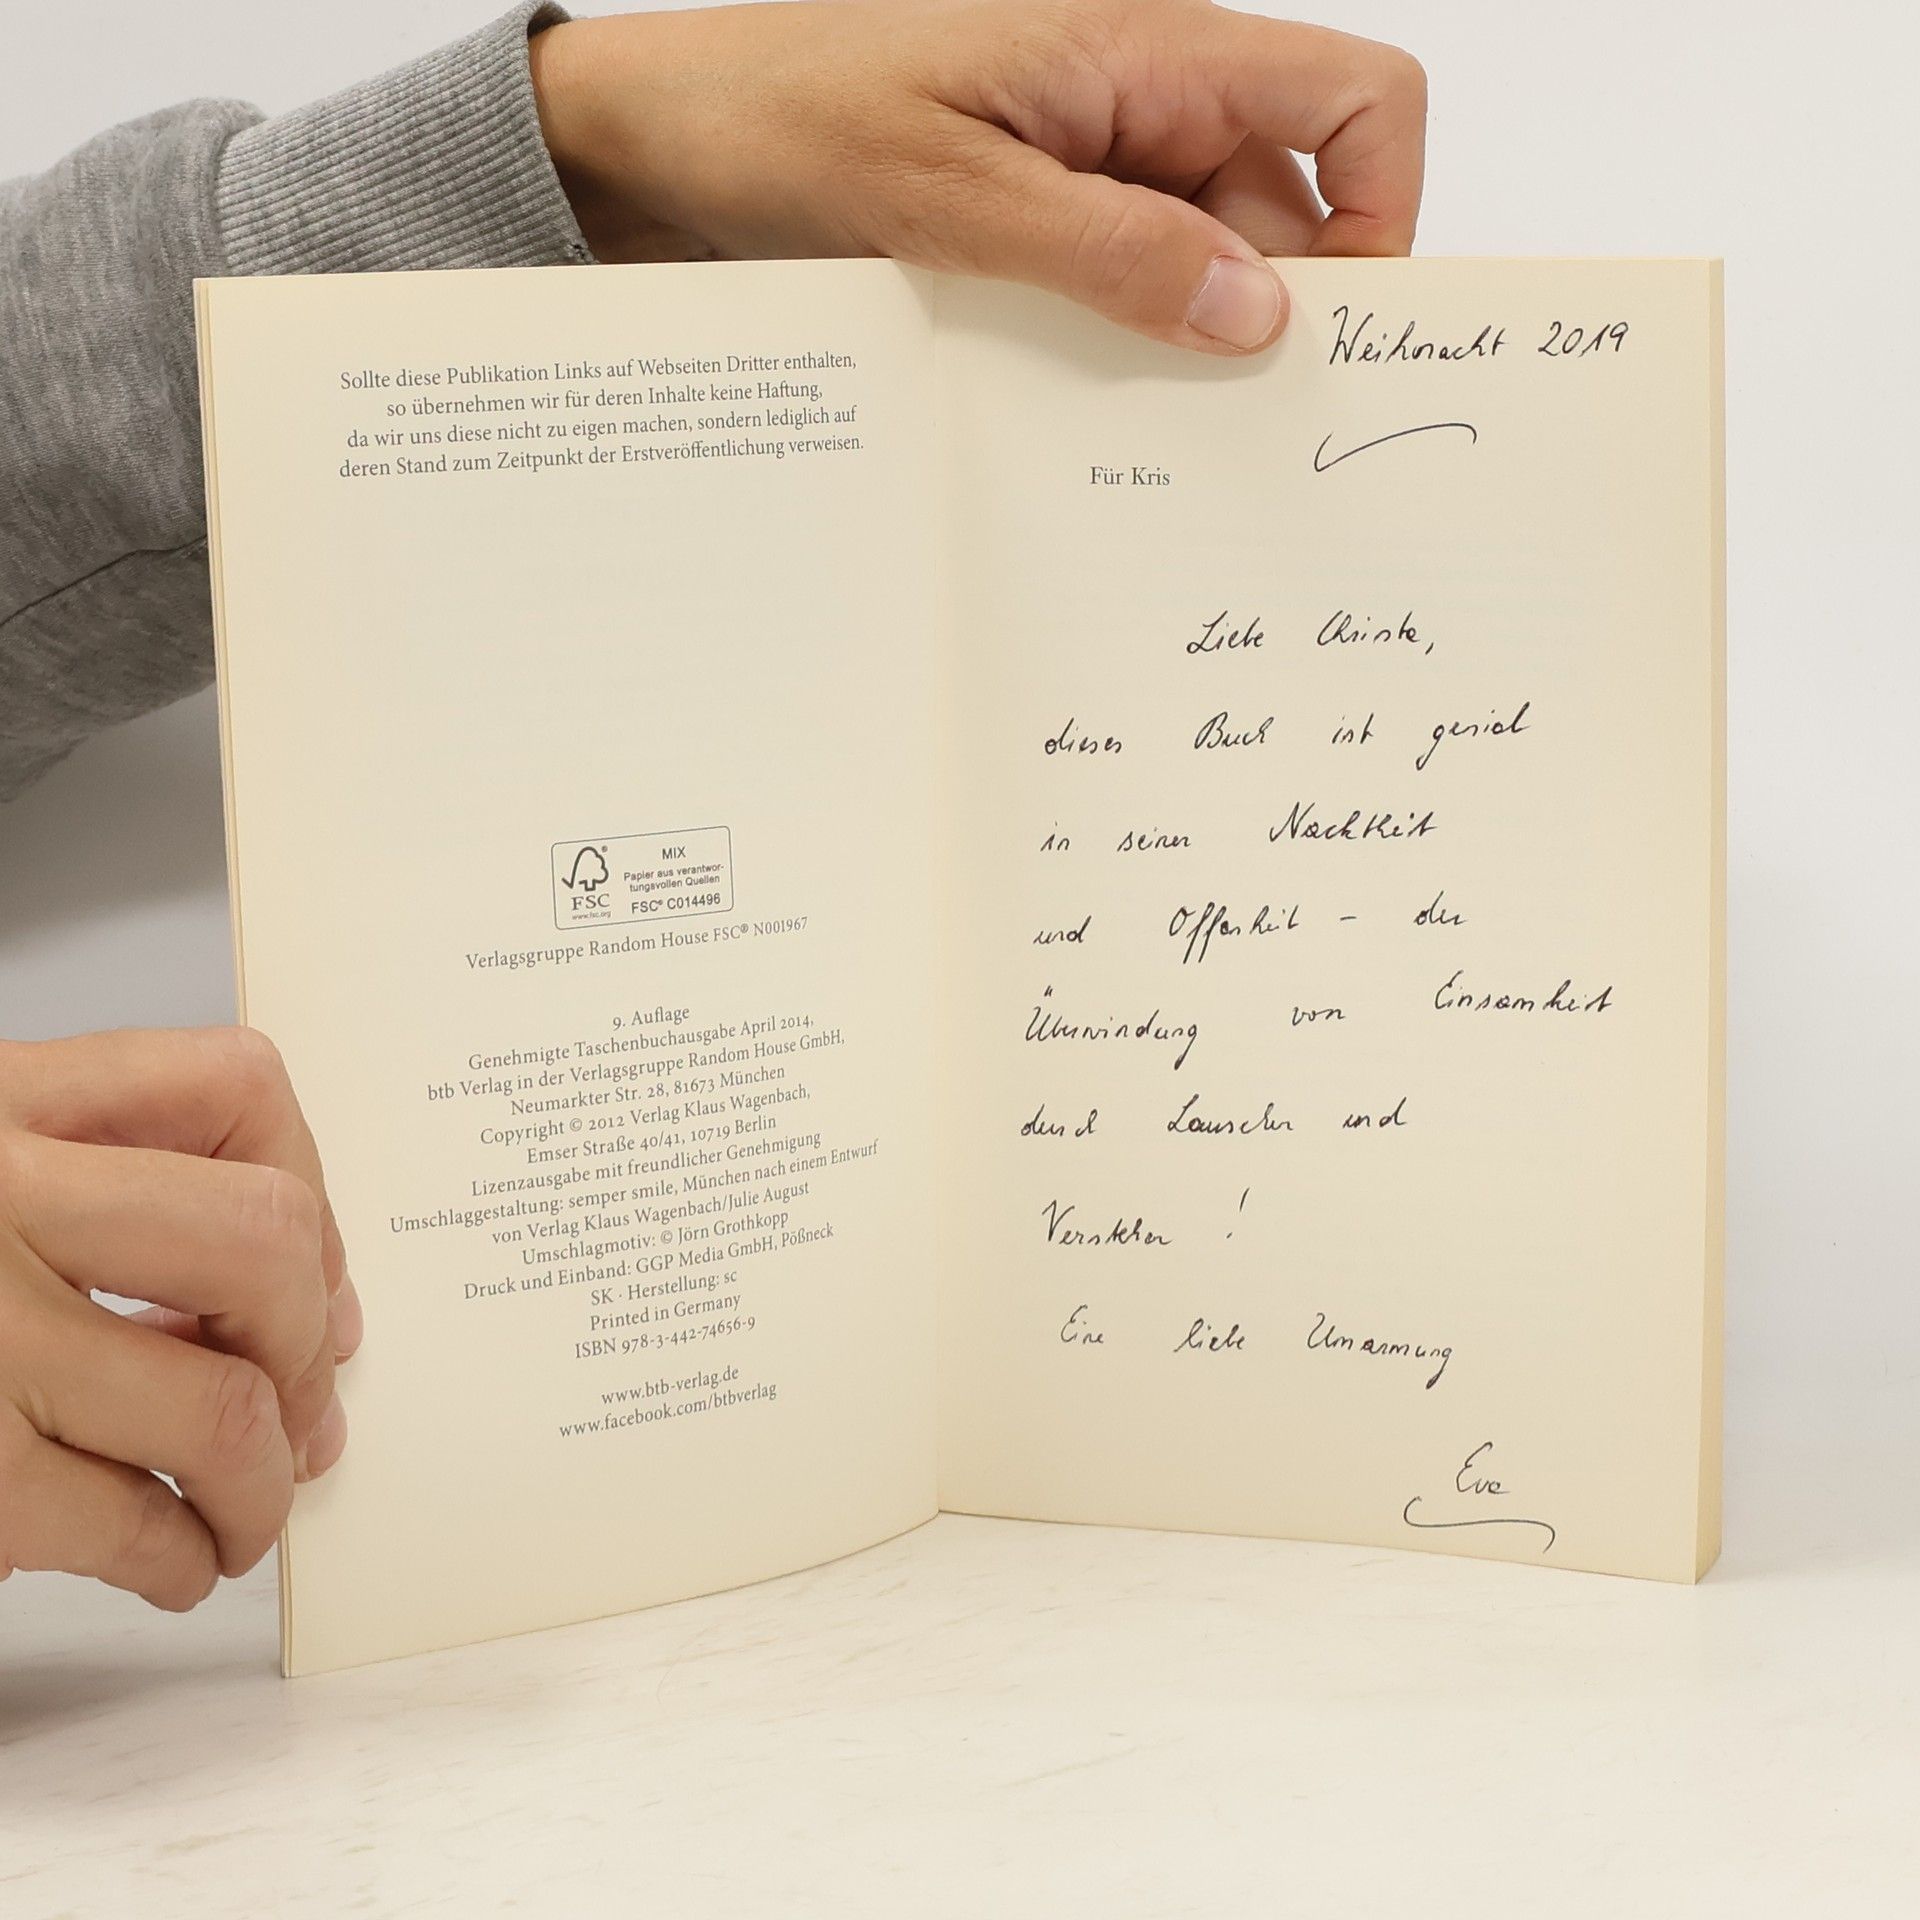 Sollte diese Publikation Links auf Webseiten Dritter enthalten,
so übernehmen wir für deren Inhalte keine Haftung,
da wir uns diese nicht zu eigen machen, sondern lediglich auf
deren Stand zum Zeitpunkt der Erstveröffentlichung verweisen.
MIX
Papier aus verantwor-
tungsvollen Quellen
FSC® C014496
FSC
www.fsc.org
Verlagsgruppe Random House FSC® N001967
9. Auflage
Genehmigte Taschenbuchausgabe April 2014,
btb Verlag in der Verlagsgruppe Random House GmbH,
Neumarkter Str. 28, 81673 München
Copyright © 2012 Verlag Klaus Wagenbach,
Emser Straße 40/41, 10719 Berlin
Lizenzausgabe mit freundlicher Genehmigung
Umschlaggestaltung: semper smile, München nach einem Entwurf
von Verlag Klaus Wagenbach/Julie August
Umschlagmotiv: © Jörn Grothkopp
Druck und Einband: GGP Media GmbH, Pößneck
SK · Herstellung: sc
Printed in Germany
ISBN 978-3-442-74656-9
www.btb-verlag.de
www.facebook.com/btbverlag
Weihnacht 2019
Für Kris
Liebe Christa,
dieses Buch ist genial
in seiner Nacktheit
und Offenheit – der
Überwindung von Einsamkeit
durch Lauschen und
Verstehen !
Eine liebe Umarmung
Eva